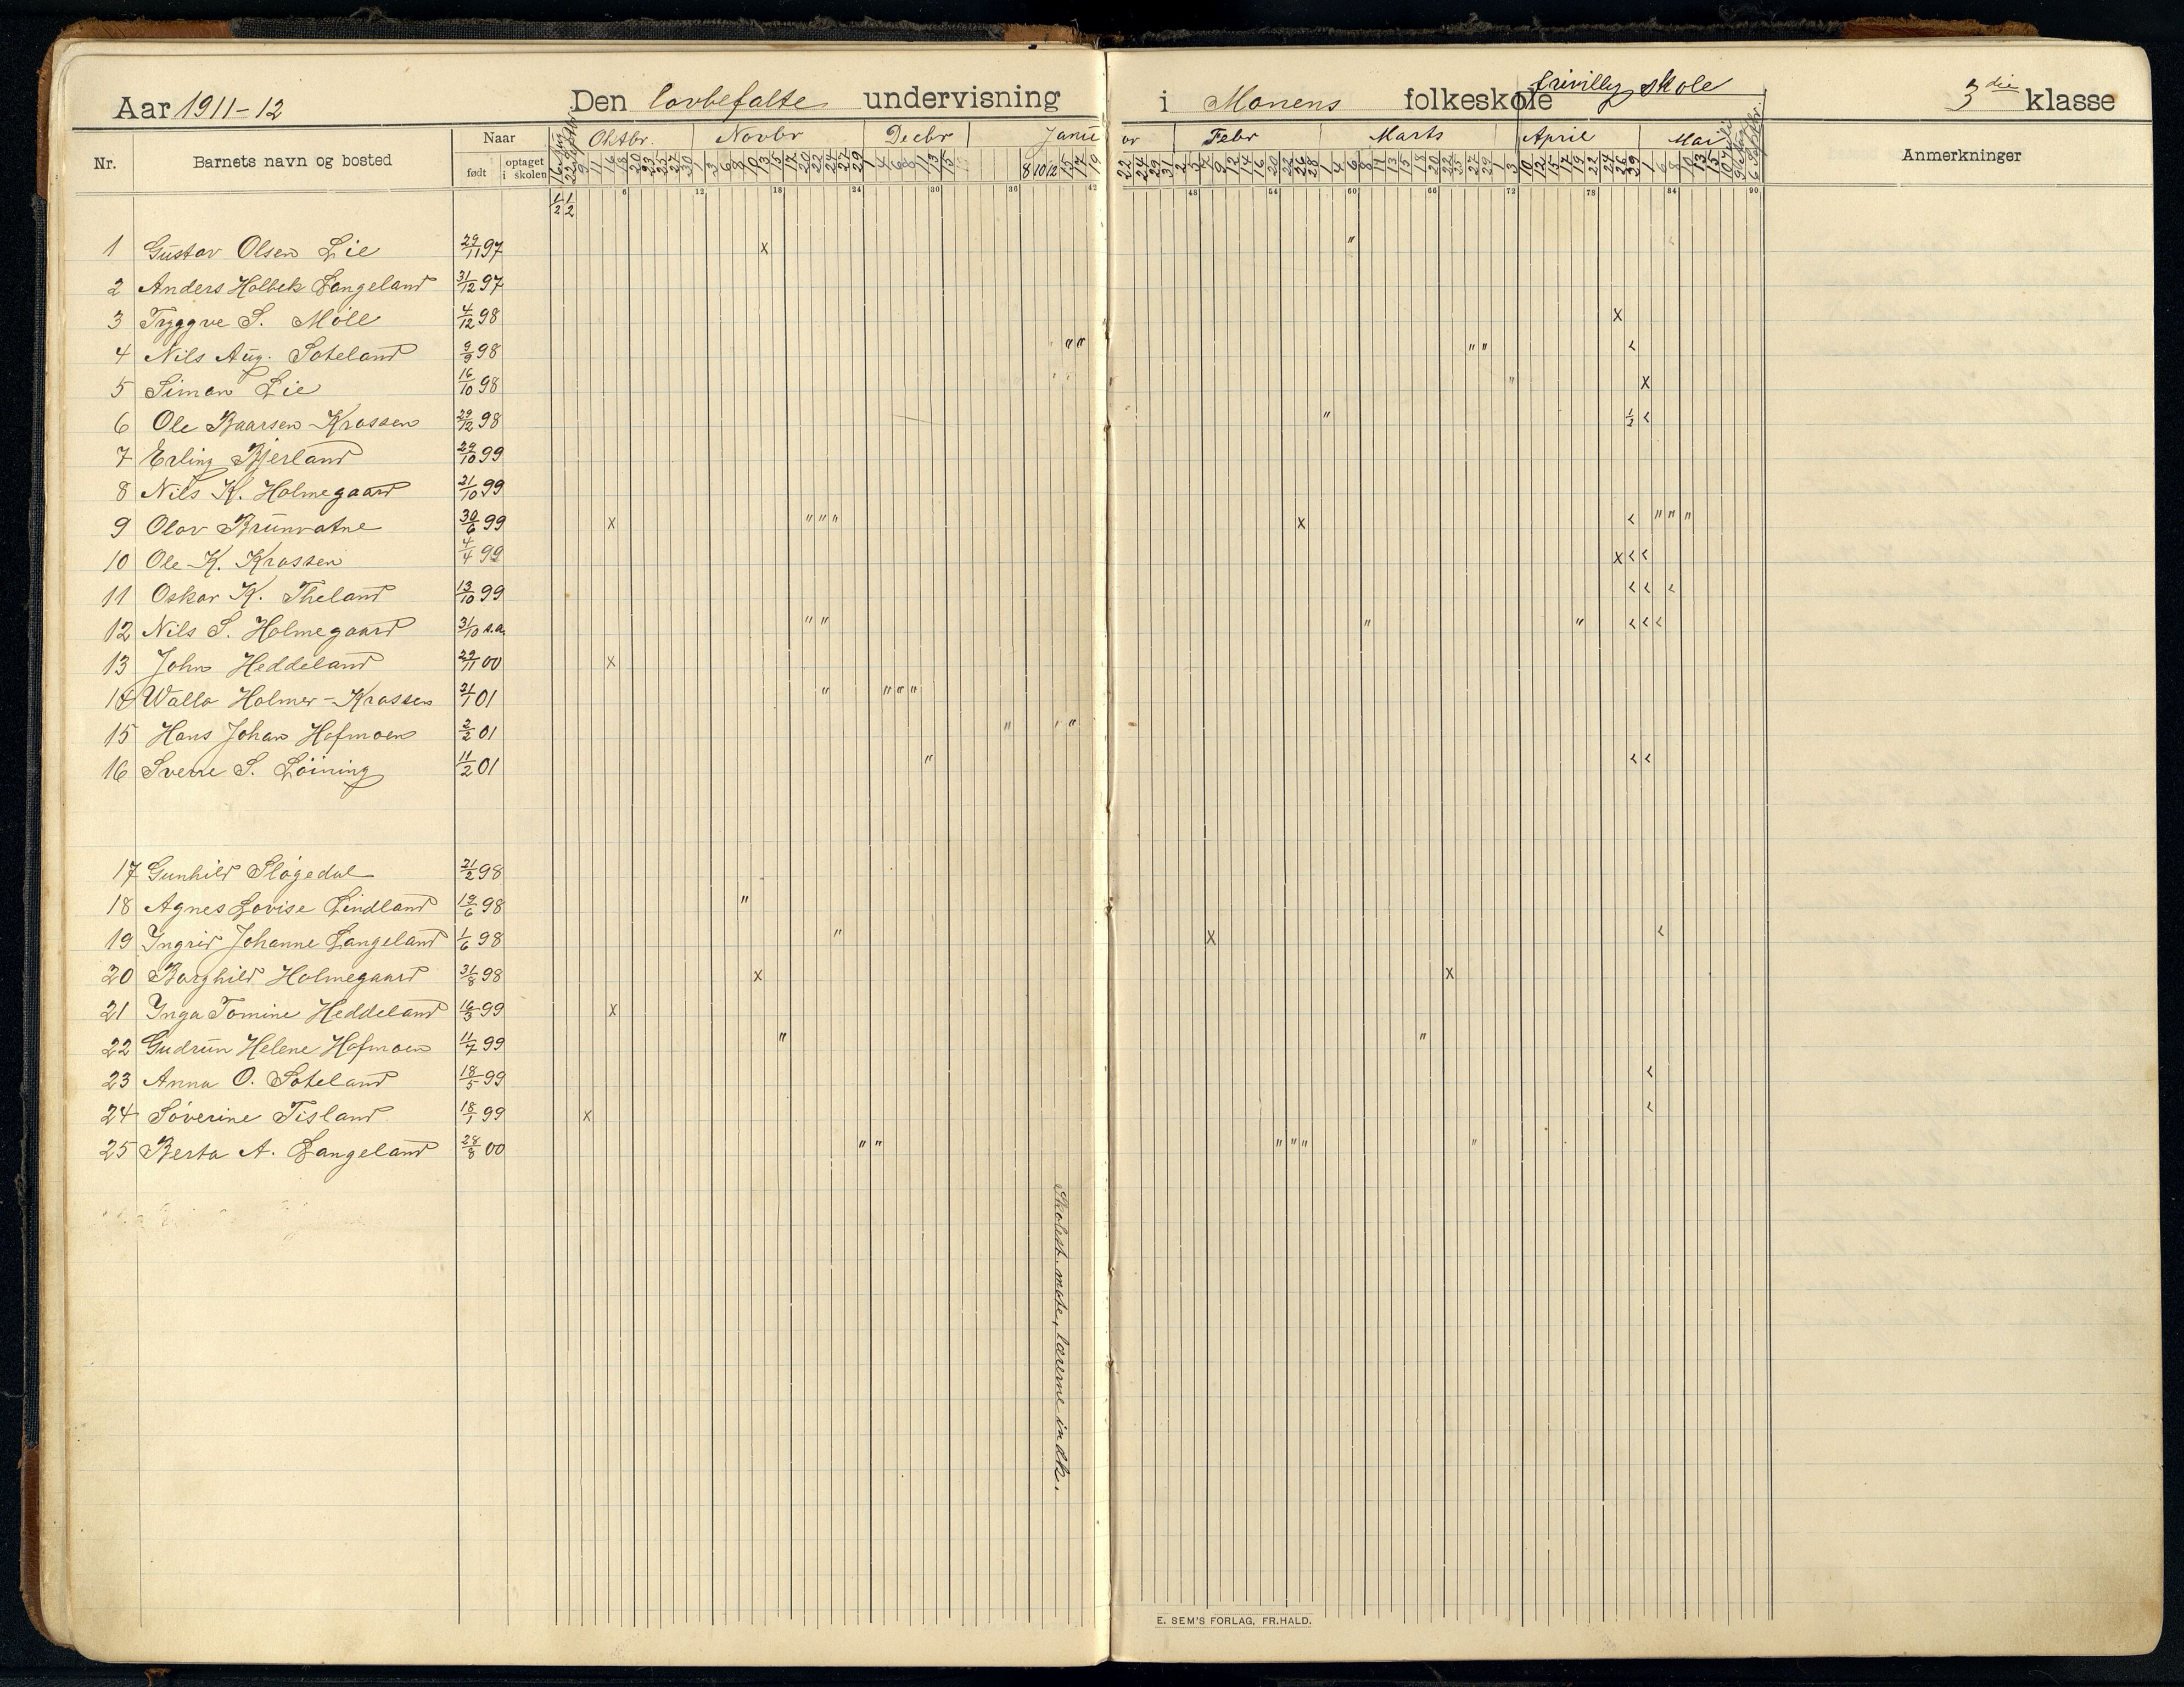 Aar 1911-12 Den lovbefalte undervisning i Monens folkeskole frivillig skole 3die klasse
Nr. Barnets navn og bosted Naar født optaget i skolen Oktbr. Novbr Decbr Januar Febr Marts April Mai Anmerkninger
6 12 18 24 30 36 42 48 54 60 66 72 78 84 90
1/2 1/2
1 Gustav Olsen Lie 29/11 97
2 Anders Holbek Langeland 31/12 97
3 Tryggve S. Möll 4/12 98
4 Nils Aug. Soteland 9/9 98
5 Simon Lie 16/10 98
6 Ole Baarsen-Krossen 29/12 98
7 Erling Bjerland 29/10 99
8 Nils K. Holmegaard 21/10 99
9 Olav Brunvatne 30/6 99
10 Ole K. Krossen 4/4 99
11 Oskar K. Theland 13/10 99
12 Nils S. Holmegaard 31/10 s.a.
13 John Heddeland 29/11 00
14 Wallo Holmer-Krossen 21/1 01
15 Hans Johan Hofmoen 2/2 01
16 Sverre S. Löining 11/2 01
17 Gunhild Slögedal 21/2 98
18 Agnes Lovise Lindland 19/6 98
19 Ingrid Johanne Langeland 1/6 98
20 Borghild Holmegaard 31/8 98
21 Inga Tomine Heddeland 16/3 99
22 Gudrun Helene Hofmoen 11/7 99
23 Anna O. Soteland 18/5 99
24 Söverine Tisland 18/1 99
25 Berta A. Langeland 28/8 00
Skolest. møte, lærerne indk.
E. SEM'S FORLAG, FR.HALD.